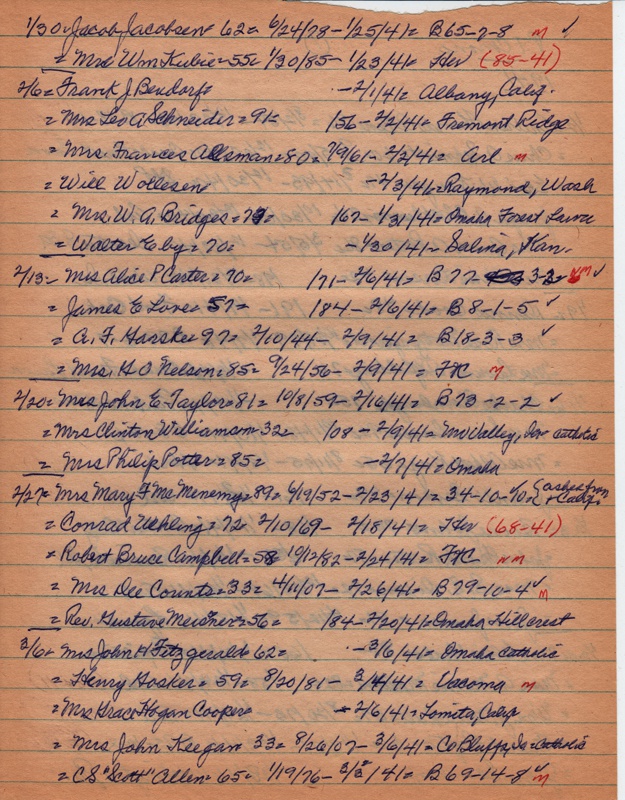 1/30= Jacob Jacobsen= 62= 6/24/78- 1/25/41= B65-7-8 M ✓
= Mrs Wm Kubie= 55= 1/30/85- 1/23/41= Her (85-41)
2/6= Frank J. Bendorf= -2/1/41= Albany, Calif.
= Mrs Leo A Schneider= 91= /56- 2/2/41= Fremont Ridge
= Mrs. Frances Allsman= 80= 7/9/61- 2/2/41= Arl M
= Will Wollesen= -2/3/41= Raymond, Wash
= Mrs. W. A. Bridges= 73= /67- 1/31/41= Omaha Forest Lawn
= Walter Eby= 70= -1/30/41= Salina, Kan.
2/13= Mrs Alice P Carter= 70= /71- 2/6/41= B 77- 3-3= NM ✓
= James E Love= 57= /84- 2/6/41= B 8-1-5 ✓
= A. F. Harske 97= 2/10/44- 2/9/41= B18-3-3 ✓
= Mrs. H O Nelson= 85= 9/24/56- 2/9/41= FtC M
2/20= Mrs John E Taylor= 81= 10/8/59- 2/16/41= B 73-2-2 ✓
= Mrs Clinton Williams= 32= /08- 2/9/41= Mo Valley, Ia= catholic
= Mrs Philip Potter= 85= -2/7/41= Omaha
2/27= Mrs Mary F McMenemy= 89= 6/19/52- 2/23/41= 34-10-10 ✓ (ashes from Calif.
= Conrad Uehling= 72 2/10/69- 2/18/41= Her (68-41)
= Robert Bruce Campbell= 58 10/12/82- 2/24/41= FtC NM
= Mrs Dee Counts= 33= 4/11/07- 2/26/41= B79-10-4 ✓ M
= Rev. Gustave Meisner= 56= /84- 2/20/41= Omaha Hillcrest
3/6= Mrs John H Fitzgerald= 62= -3/6/41= Omaha catholic
= Henry Hosker= 59= 8/20/81- 3/4/41= Vacoma M
= Mrs Grace Hogan Cooper= -2/6/41= Lomita, Calif
= Mrs John Keegan 33= 8/26/07- 3/6/41= Co Bluffs, Ia= catholic
= CS "Scott" Allen= 65= 1/19/76- 3/3/41= B 69-14-8 ✓ M